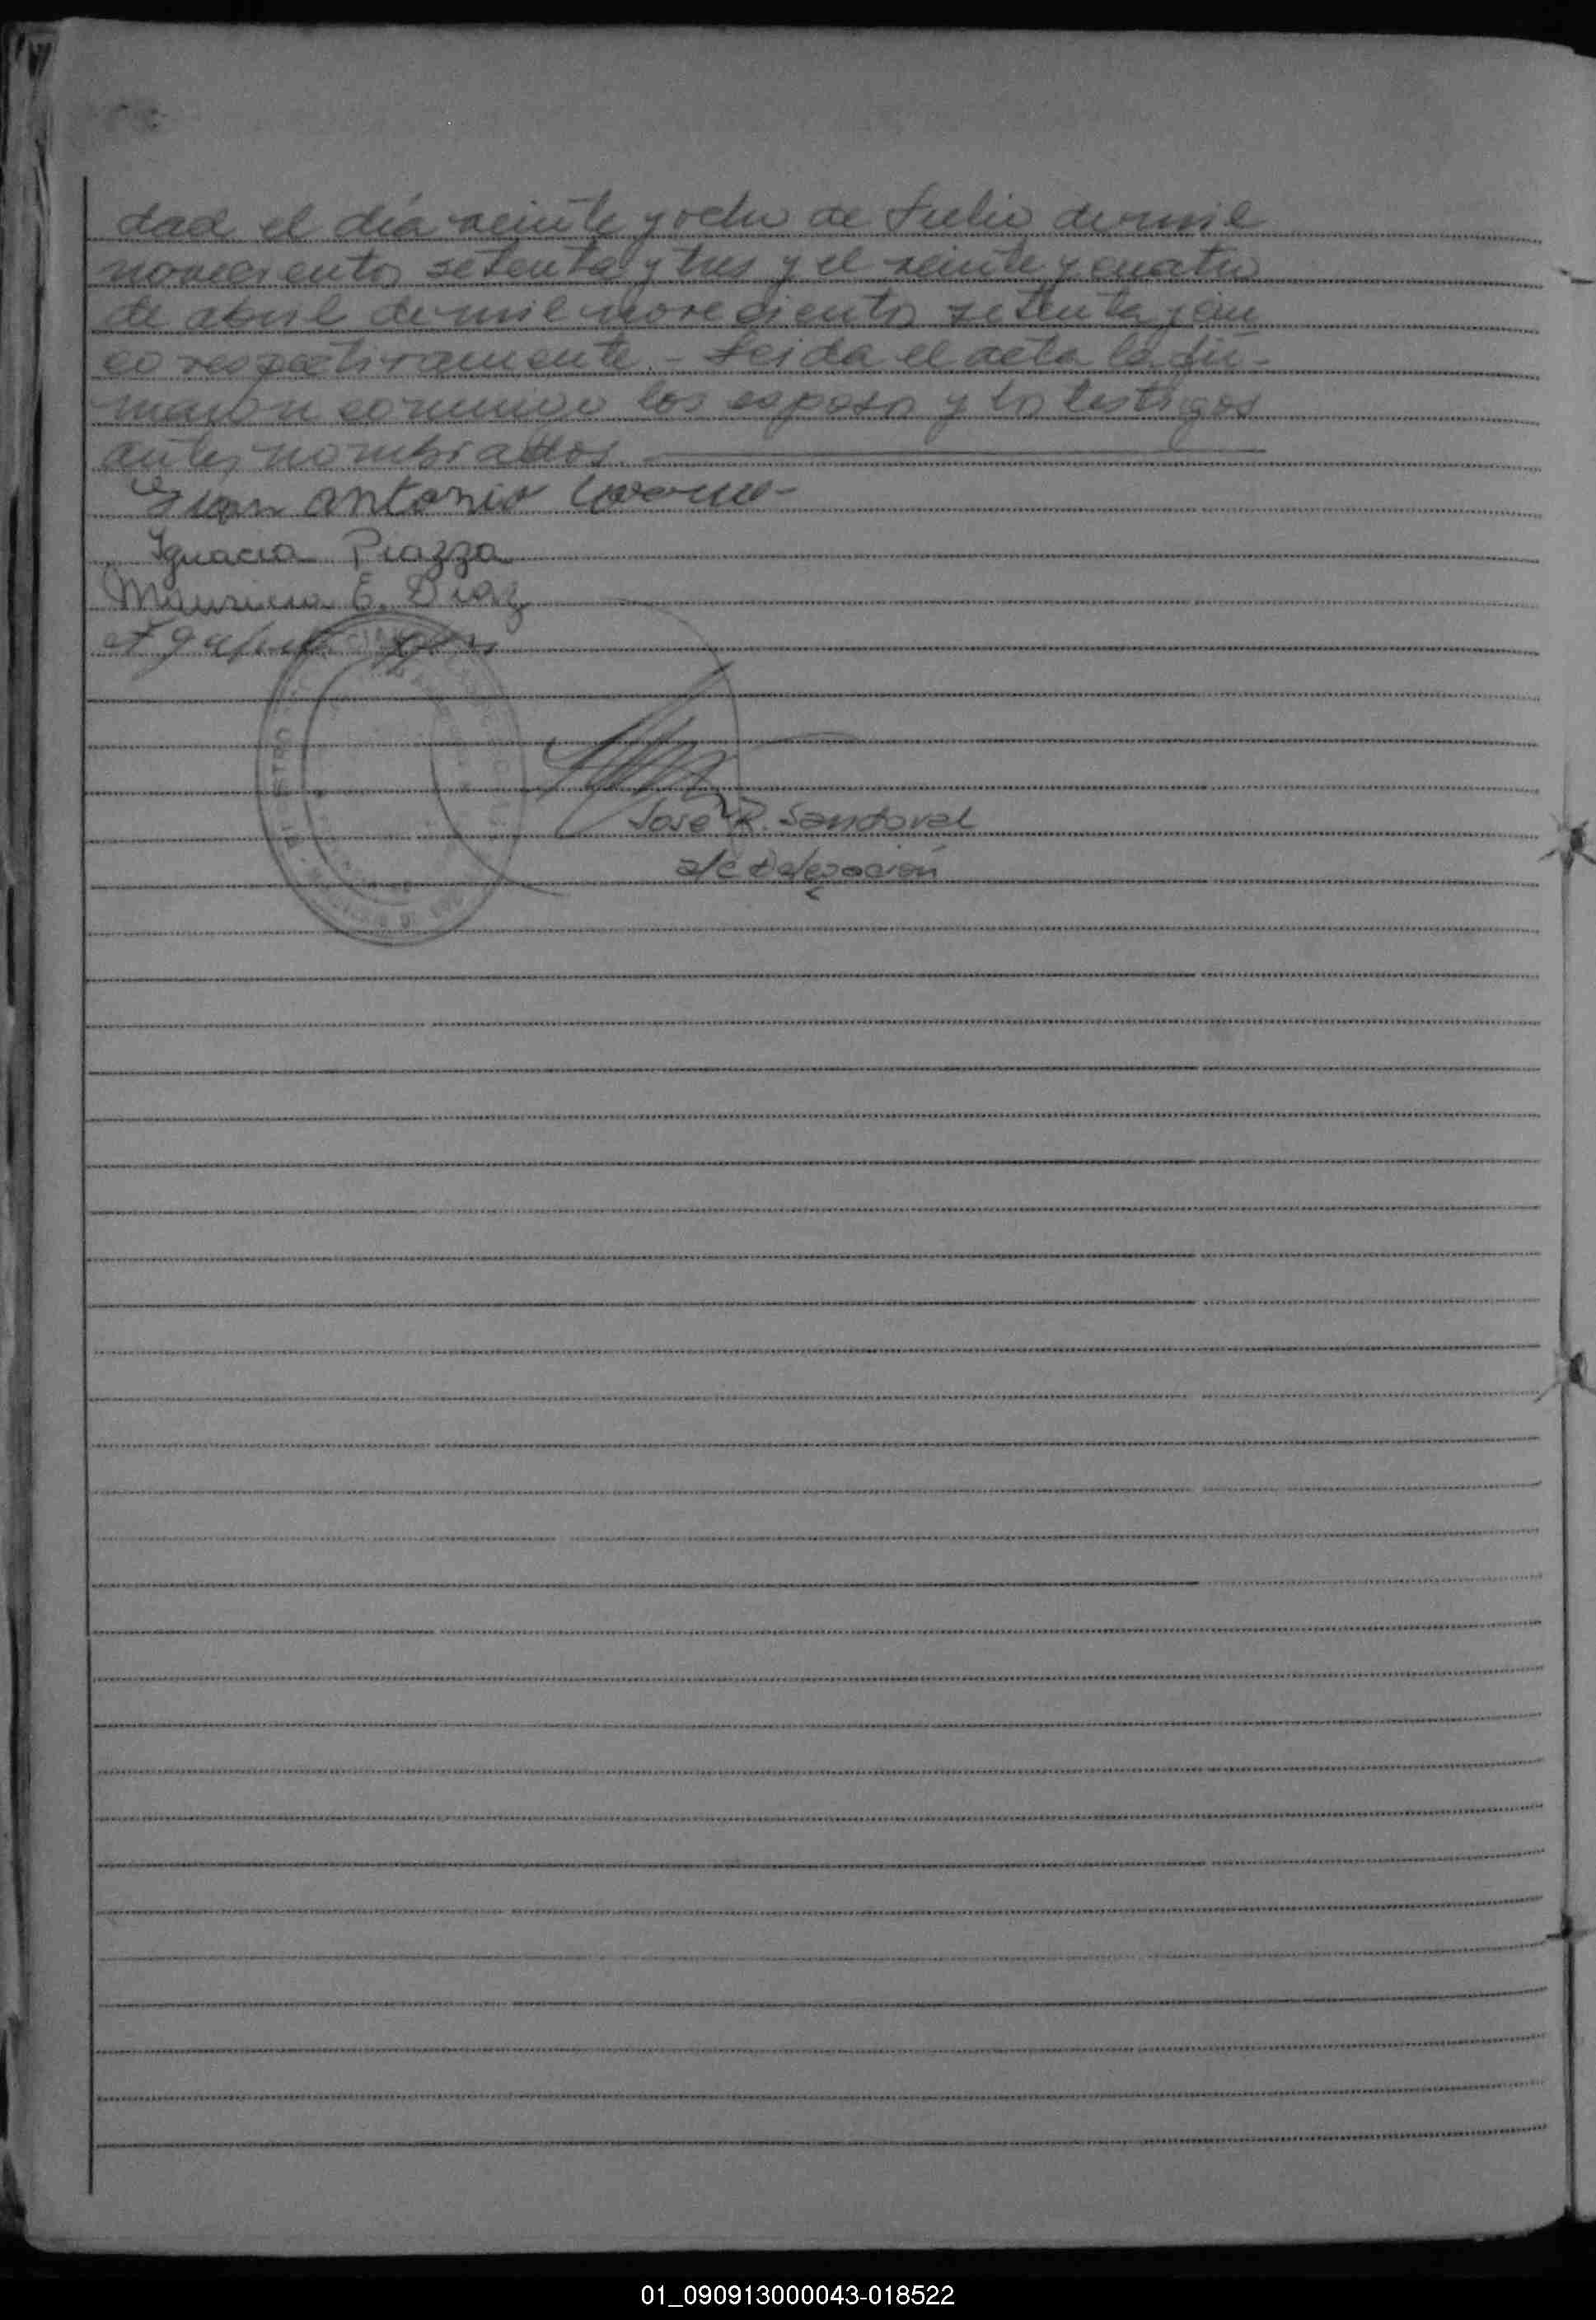 dad el día veinte y ocho de Julio de mil
novecientos setenta y tres y el veinte y cuatro
de abril de mil novecientos setenta y cin
co respectivamente. - Leida el acta la fir-
maron conmigo los esposos y los testigos
antes nombrados.
Juan Antonio
Ignacia Piazza
Mauricia E. Diaz
Jose R. Sandoval
a/c Delegación
01_090913000043-018522